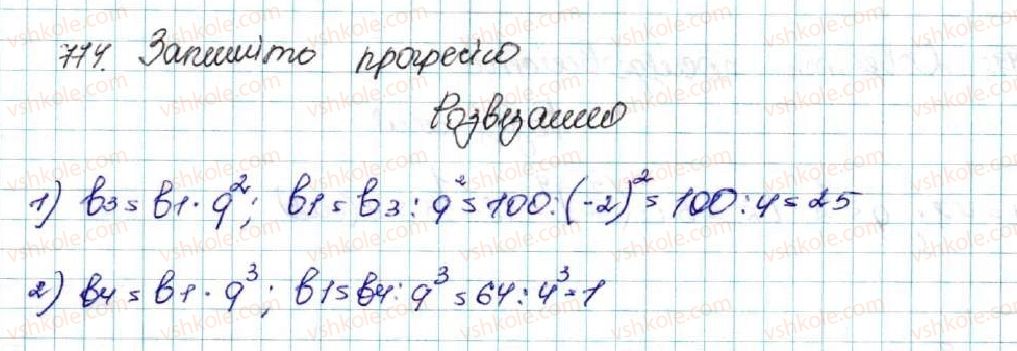 714. Запишіть прогресію
Розв'язання
1) b3 = b1 · q²; b1 = b3 : q² = 100 : (-2)² = 100 : 4 = 25
2) b4 = b1 · q³; b1 = b4 : q³ = 64 : 4³ = 1